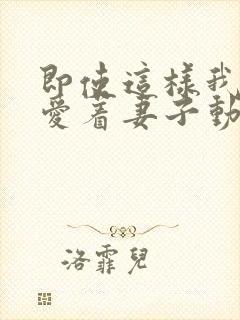 即使這樣我
愛着妻子動
洛霏兒